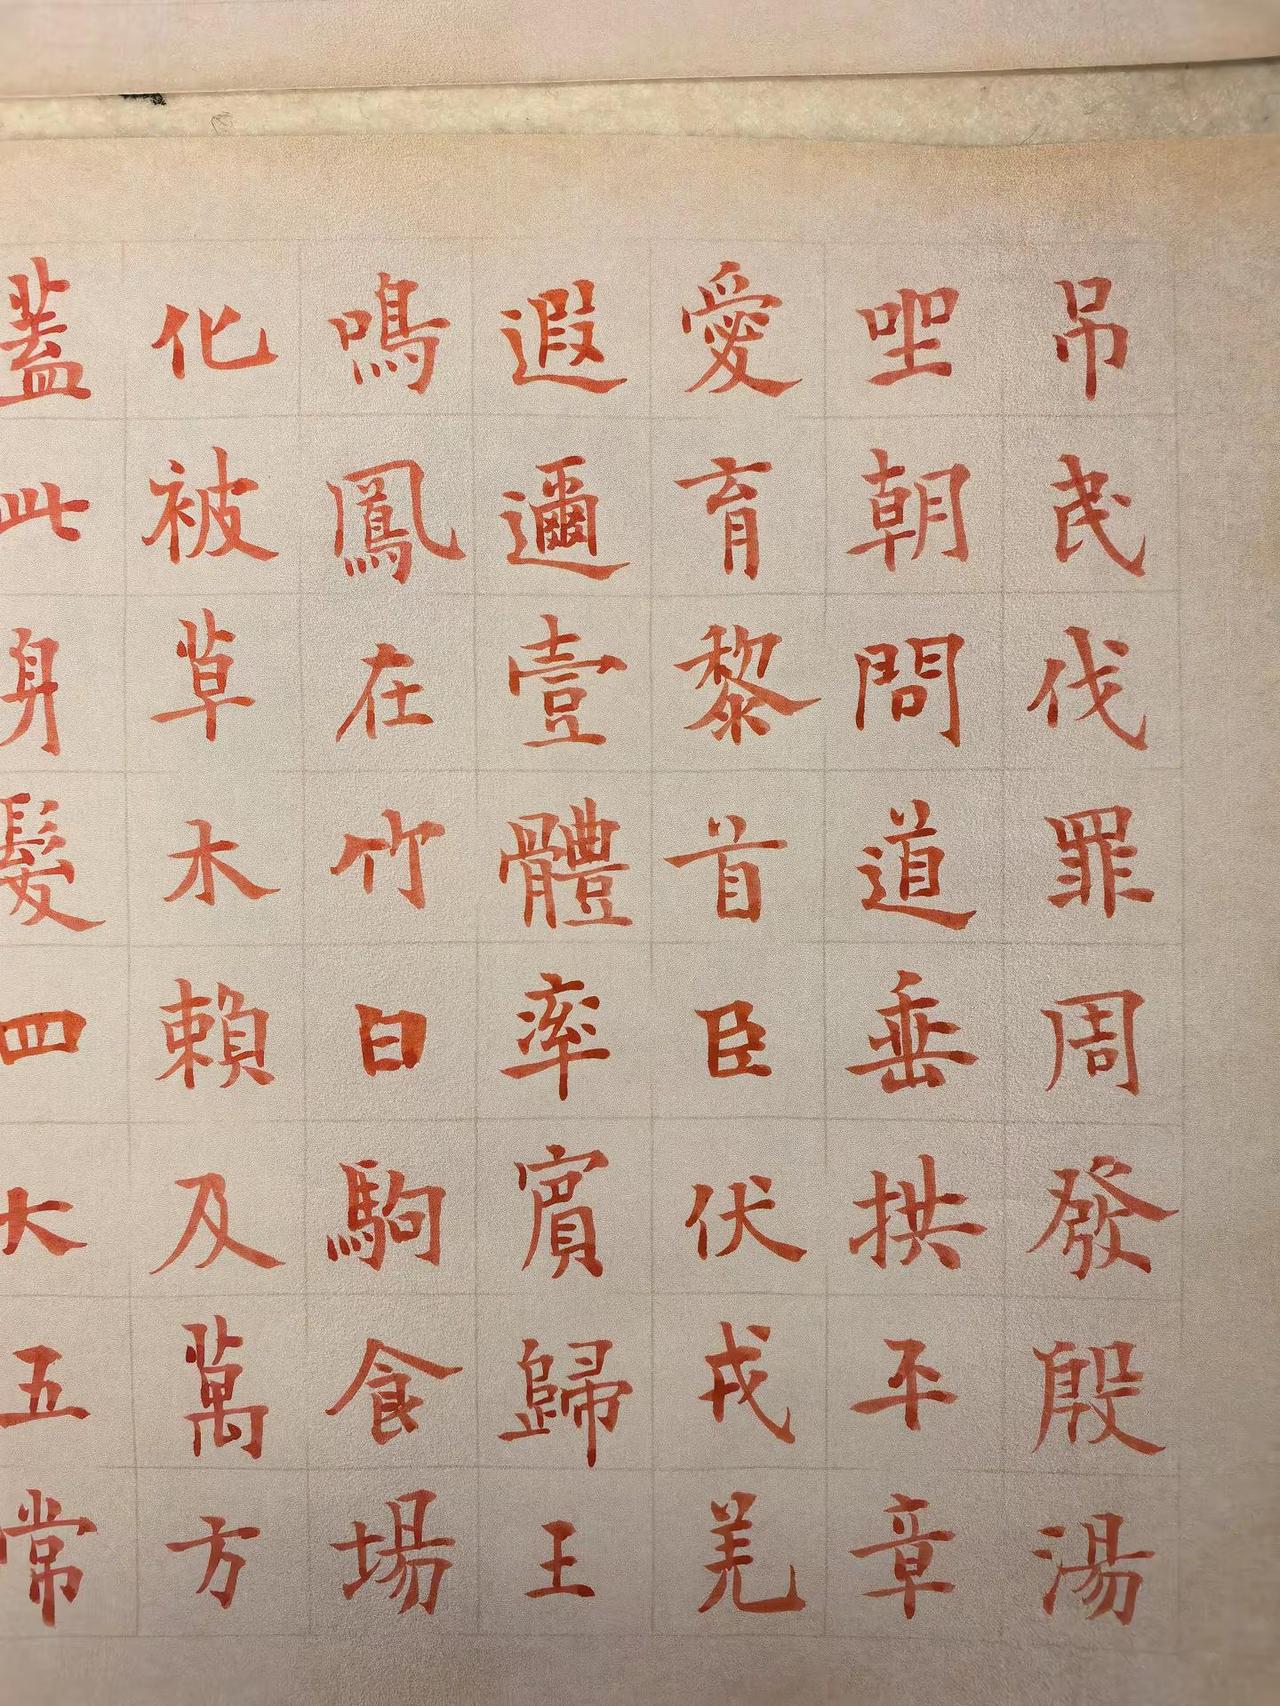 吊民伐罪周發殷湯
坐朝問道垂拱平章
愛育黎首臣伏戎羌
遐邇壹體率賓歸王
鳴鳳在竹白駒食場
化被草木賴及萬方
蓋此身髮四大五常